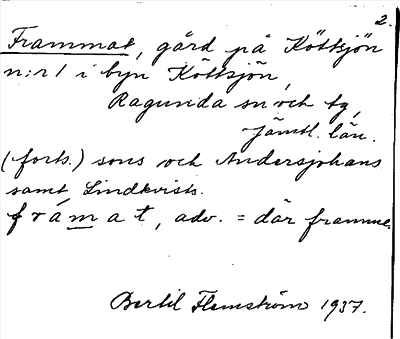 2.
Frammat, gård på Köttsjön
n:r 1 i byn Köttsjön,
Ragunda sn och tg,
Jämtl. län.
(forts.) sons och Andersjohans
samt Lindkvists.
frámat, adv. = där framme.
Bertil Flemström 1937.